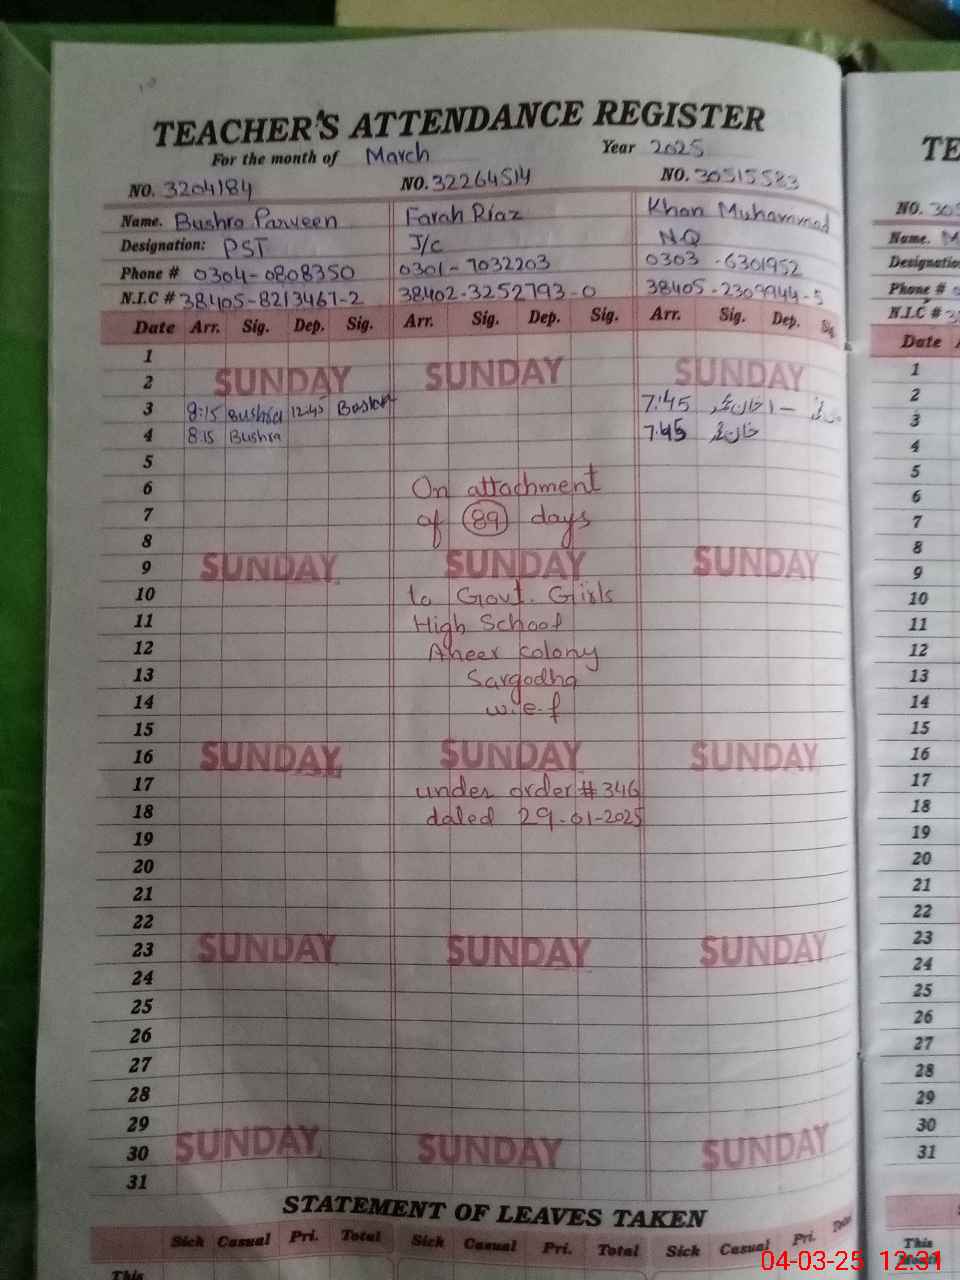 TEACHER'S ATTENDANCE REGISTER
For the month of March Year 2025
NO. 3204184 NO. 32264514 NO. 30515583
Name. Bushra Parveen Farah Riaz Khan Muhammad
Designation: PST J/c N.Q
Phone # 0304-0808350 0301-7032203 0303-6301952
N.I.C # 38405-8213467-2 38402-3252793-0 38405-2309944-5
Date Arr. Sig. Dep. Sig. Arr. Sig. Dep. Sig. Arr. Sig. Dep. Sig.
1
2 SUNDAY SUNDAY SUNDAY
3 8:15 Bushra 12:45 Bushra 7:45 خان محمد
4 8:15 Bushra 7:45 خان محمد
5
6 On attachment
7 of 89 days
8
9 SUNDAY SUNDAY SUNDAY
10 to Govt. Girls
11 High School
12 Colony
13 Sargodha
14 w.e.f
15
16 SUNDAY SUNDAY SUNDAY
17 under order # 346
18 dated 29-01-2025
19
20
21
22
23 SUNDAY SUNDAY SUNDAY
24
25
26
27
28
29
30 SUNDAY SUNDAY SUNDAY
31
STATEMENT OF LEAVES TAKEN
Sick Casual Pri. Total Sick Casual Pri. Total Sick Casual Pri. Total
This
TE
NO. 305
Name. M
Designatio
Phone #
N.I.C # 3
Date
1
2
3
4
5
6
7
8
9
10
11
12
13
14
15
16
17
18
19
20
21
22
23
24
25
26
27
28
29
30
31
This
Month
04-03-25 12:31